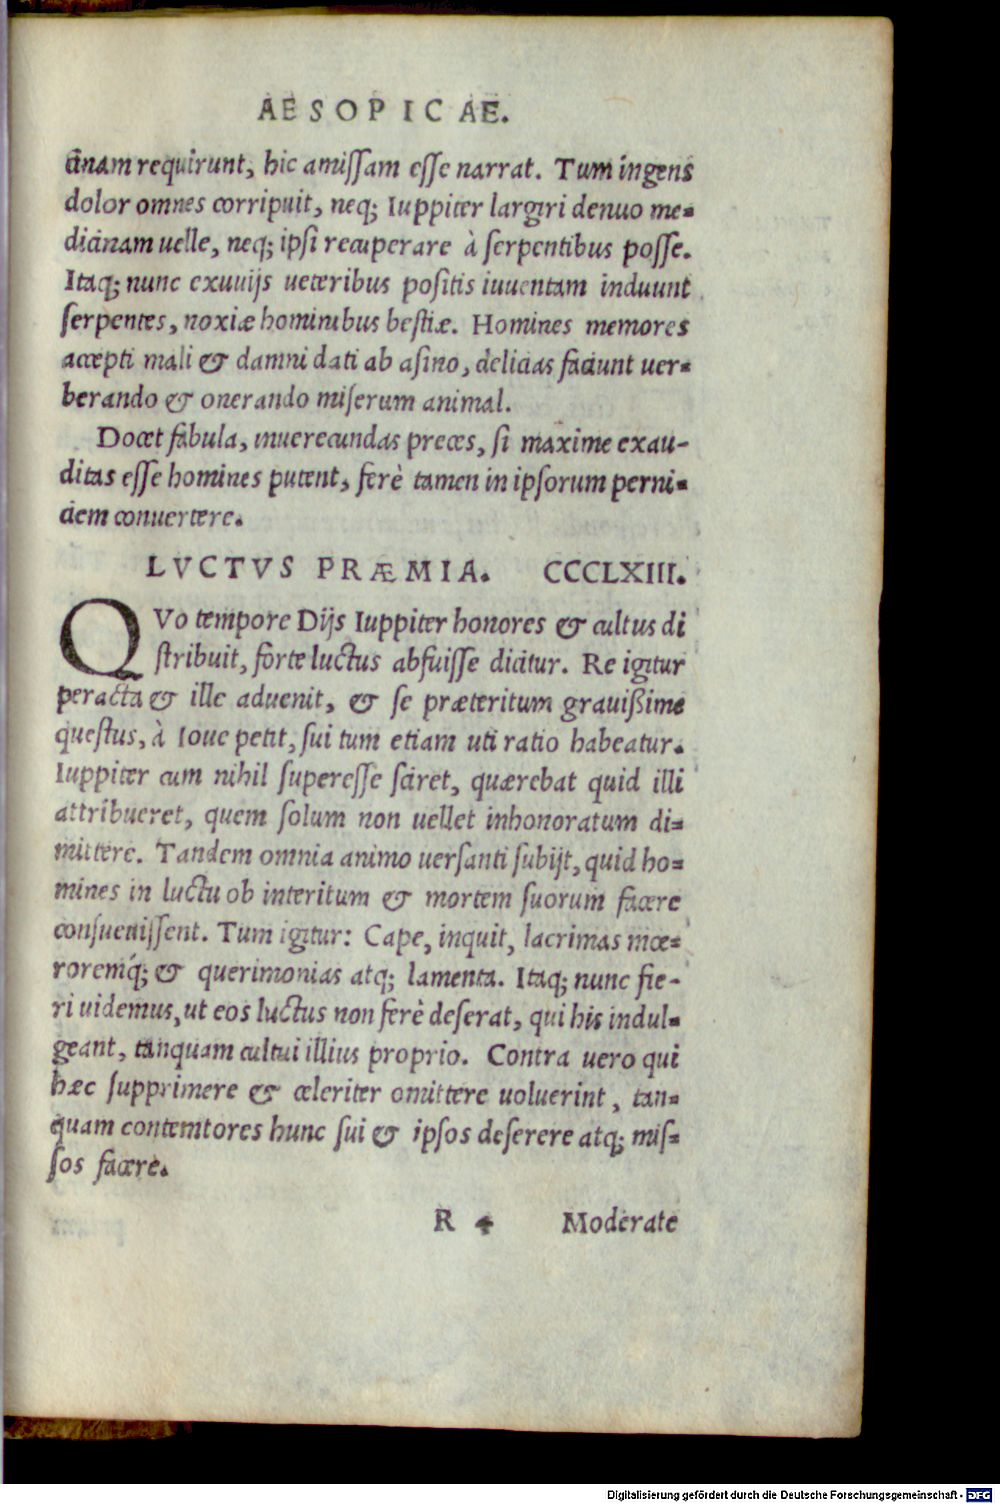 AESOPICAE.
cinam requirunt, hic amissam esse narrat. Tum ingens
dolor omnes corripuit, neq; Iuppiter largiri denuo me-
dicinam uelle, neq; ipsi recuperare à serpentibus posse.
Itaq; nunc exuuijs ueteribus positis iuuentam induunt
serpentes, noxiæ hominibus bestiæ. Homines memores
accepti mali & damni dati ab asino, delicias faciunt uer-
berando & onerando miserum animal.
Docet fabula, inuerecundas preces, si maxime exau-
ditas esse homines putent, ferè tamen in ipsorum perni-
ciem conuertere.
LVCTVS PRÆMIA. CCCLXIII.
QVo tempore Dijs Iuppiter honores & cultus di
stribuit, forte luctus abfuisse dicitur. Re igitur
peracta & ille aduenit, & se præteritum grauißime
questus, à Ioue petit, sui tum etiam uti ratio habeatur.
Iuppiter cum nihil superesse sciret, quærebat quid illi
attribueret, quem solum non uellet inhonoratum di-
mittere. Tandem omnia animo uersanti subijt, quid ho-
mines in luctu ob interitum & mortem suorum facere
consueuissent. Tum igitur: Cape, inquit, lacrimas mœ-
roremq́; & querimonias atq; lamenta. Itaq; nunc fie-
ri uidemus, ut eos luctus non ferè deserat, qui his indul-
geant, tanquam cultui illius proprio. Contra uero qui
hæc supprimere & celeriter omittere uoluerint, tan-
quam contemtores hunc sui & ipsos deserere atq; mis-
sos facere.
R 4 Moderate
Digitalisierung gefördert durch die Deutsche Forschungsgemeinschaft - DFG